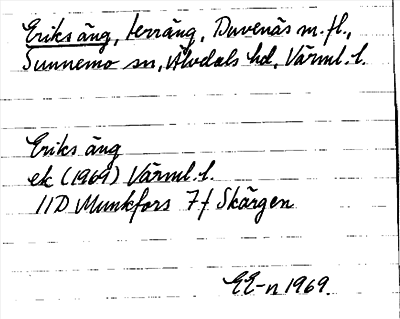 Eriks äng, terräng, Duvenäs m.fl.,
Sunnemo sn, Älvdals hd, Värml. l.
Eriks äng
ek (1969) Värml. l.
11D Munkfors 7f Skärgen
EE-n 1969.